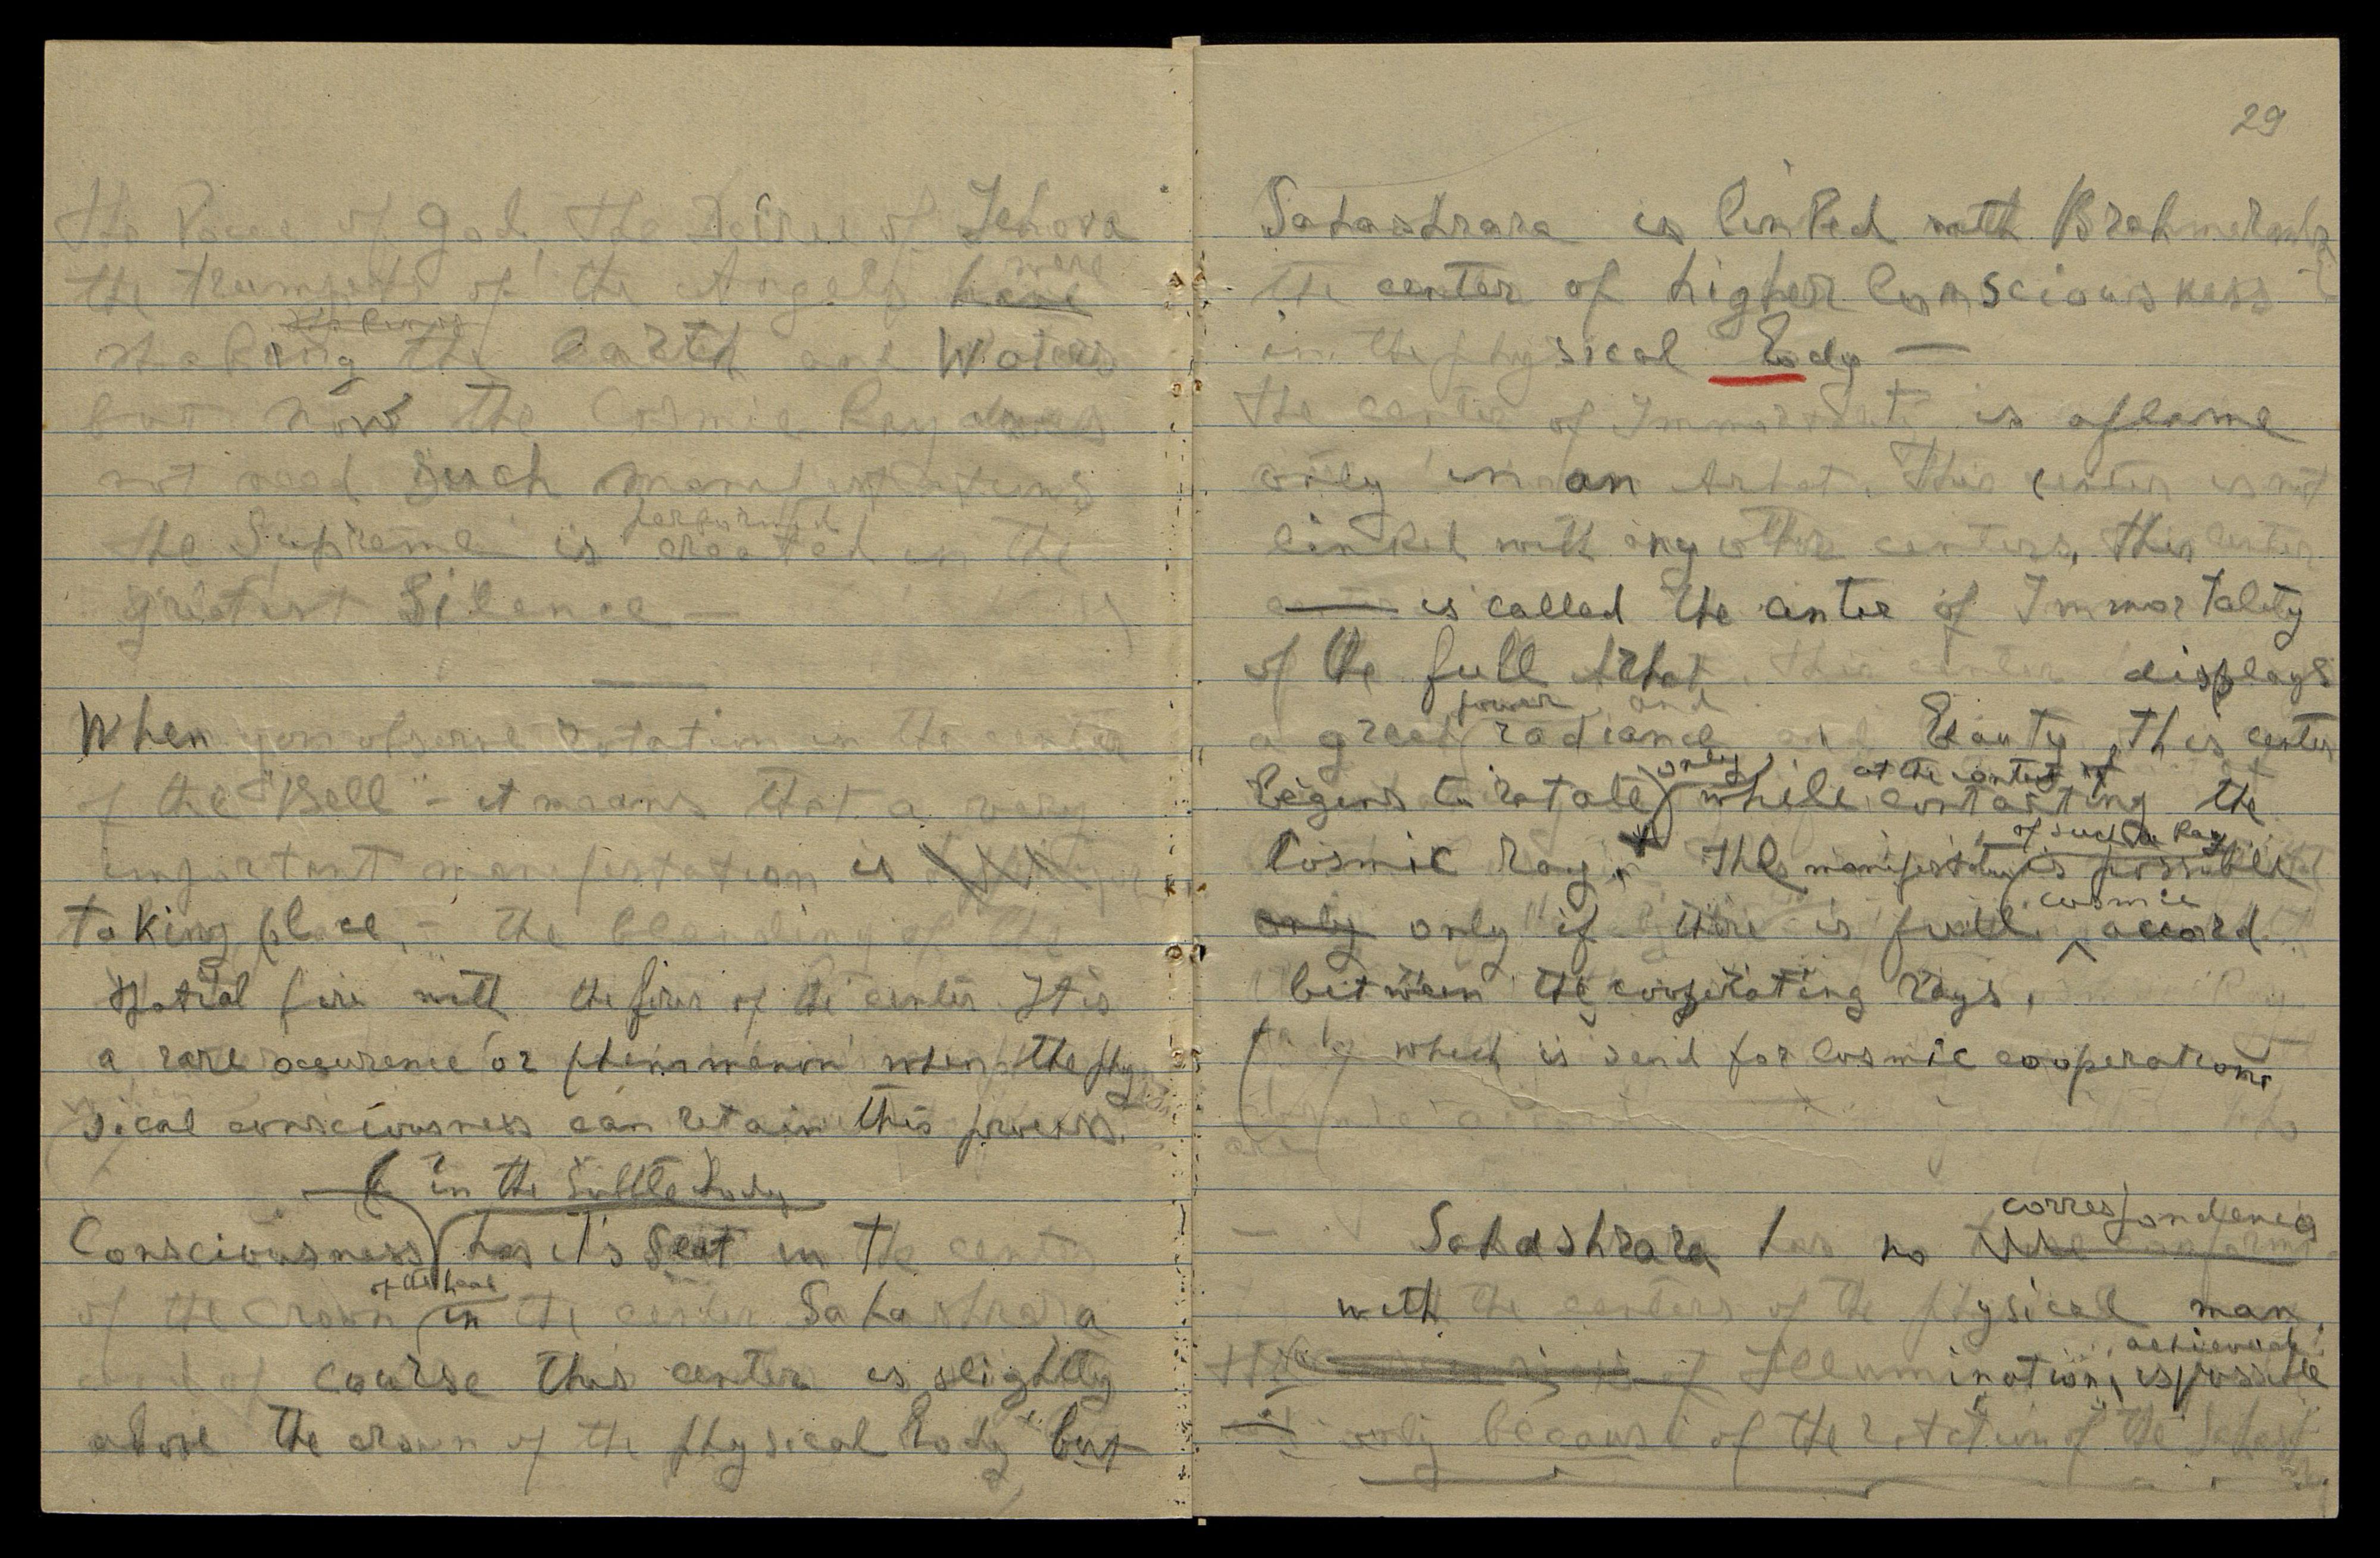 the Voice of God, the Desree of Jehova
the trumpets of the Angels have were
shaking the earth and Waters
but now the Cosmic Ray does
not need such manifestations
performed
the Supreme is created in the
greatest Silence —
When you observe rotation in the center
of the "Bell" - it means that a very
important manifestation is
taking place, - the blending of the
spatial fire with the fires of the center It is
a rare occurence or phenomenon when the phy
sical consciousness can retain this process.
in the Subtle body
Consciousness has it's seat in the center
of the head
of the crown in the center Sahashrara
and of course this center is slightly
above the crown of the physical body but
29
Sahashrara is linked with Brahmerandra
the center of higher Consciousness
in the physical Body —
the center of Immortality is aflame
only in an Arhat. This center is not
linked with any other centers, this center
is called the center of Immortality
of the full Arhat. this center displays
power and
a great radiance and Beauty, this center
only at the contact of
begins to rotate while contacting the
of such a Ray
Cosmic Ray. The manifestation is possible
cosmic
only only if there is full accord
between the cooperating rays.
which is send for Cosmic cooperation
are
correspondence
Sahashrara has no
with the centers of the physical man.
achievement
of Illumination, is possible
only because of the rotation of the